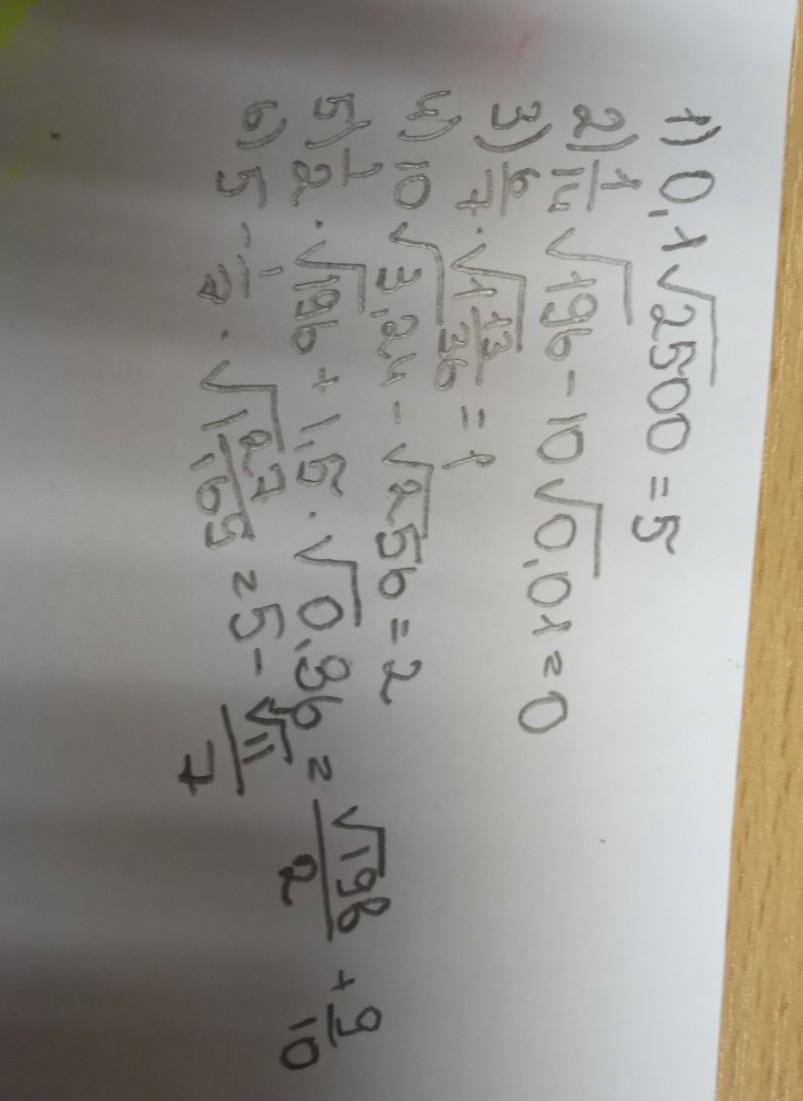 1) 0,1√2500 = 5
2) 1/14 √196 - 10√0,01 = 0
3) 6/7 · √1 13/36 = 1
4) 10√3,24 - √256 = 2
5) 1/2 · √196 + 1,5 · √0,36 = √196/2 + 9/10
6) 5 - 1/7 · = 5 - √11/7